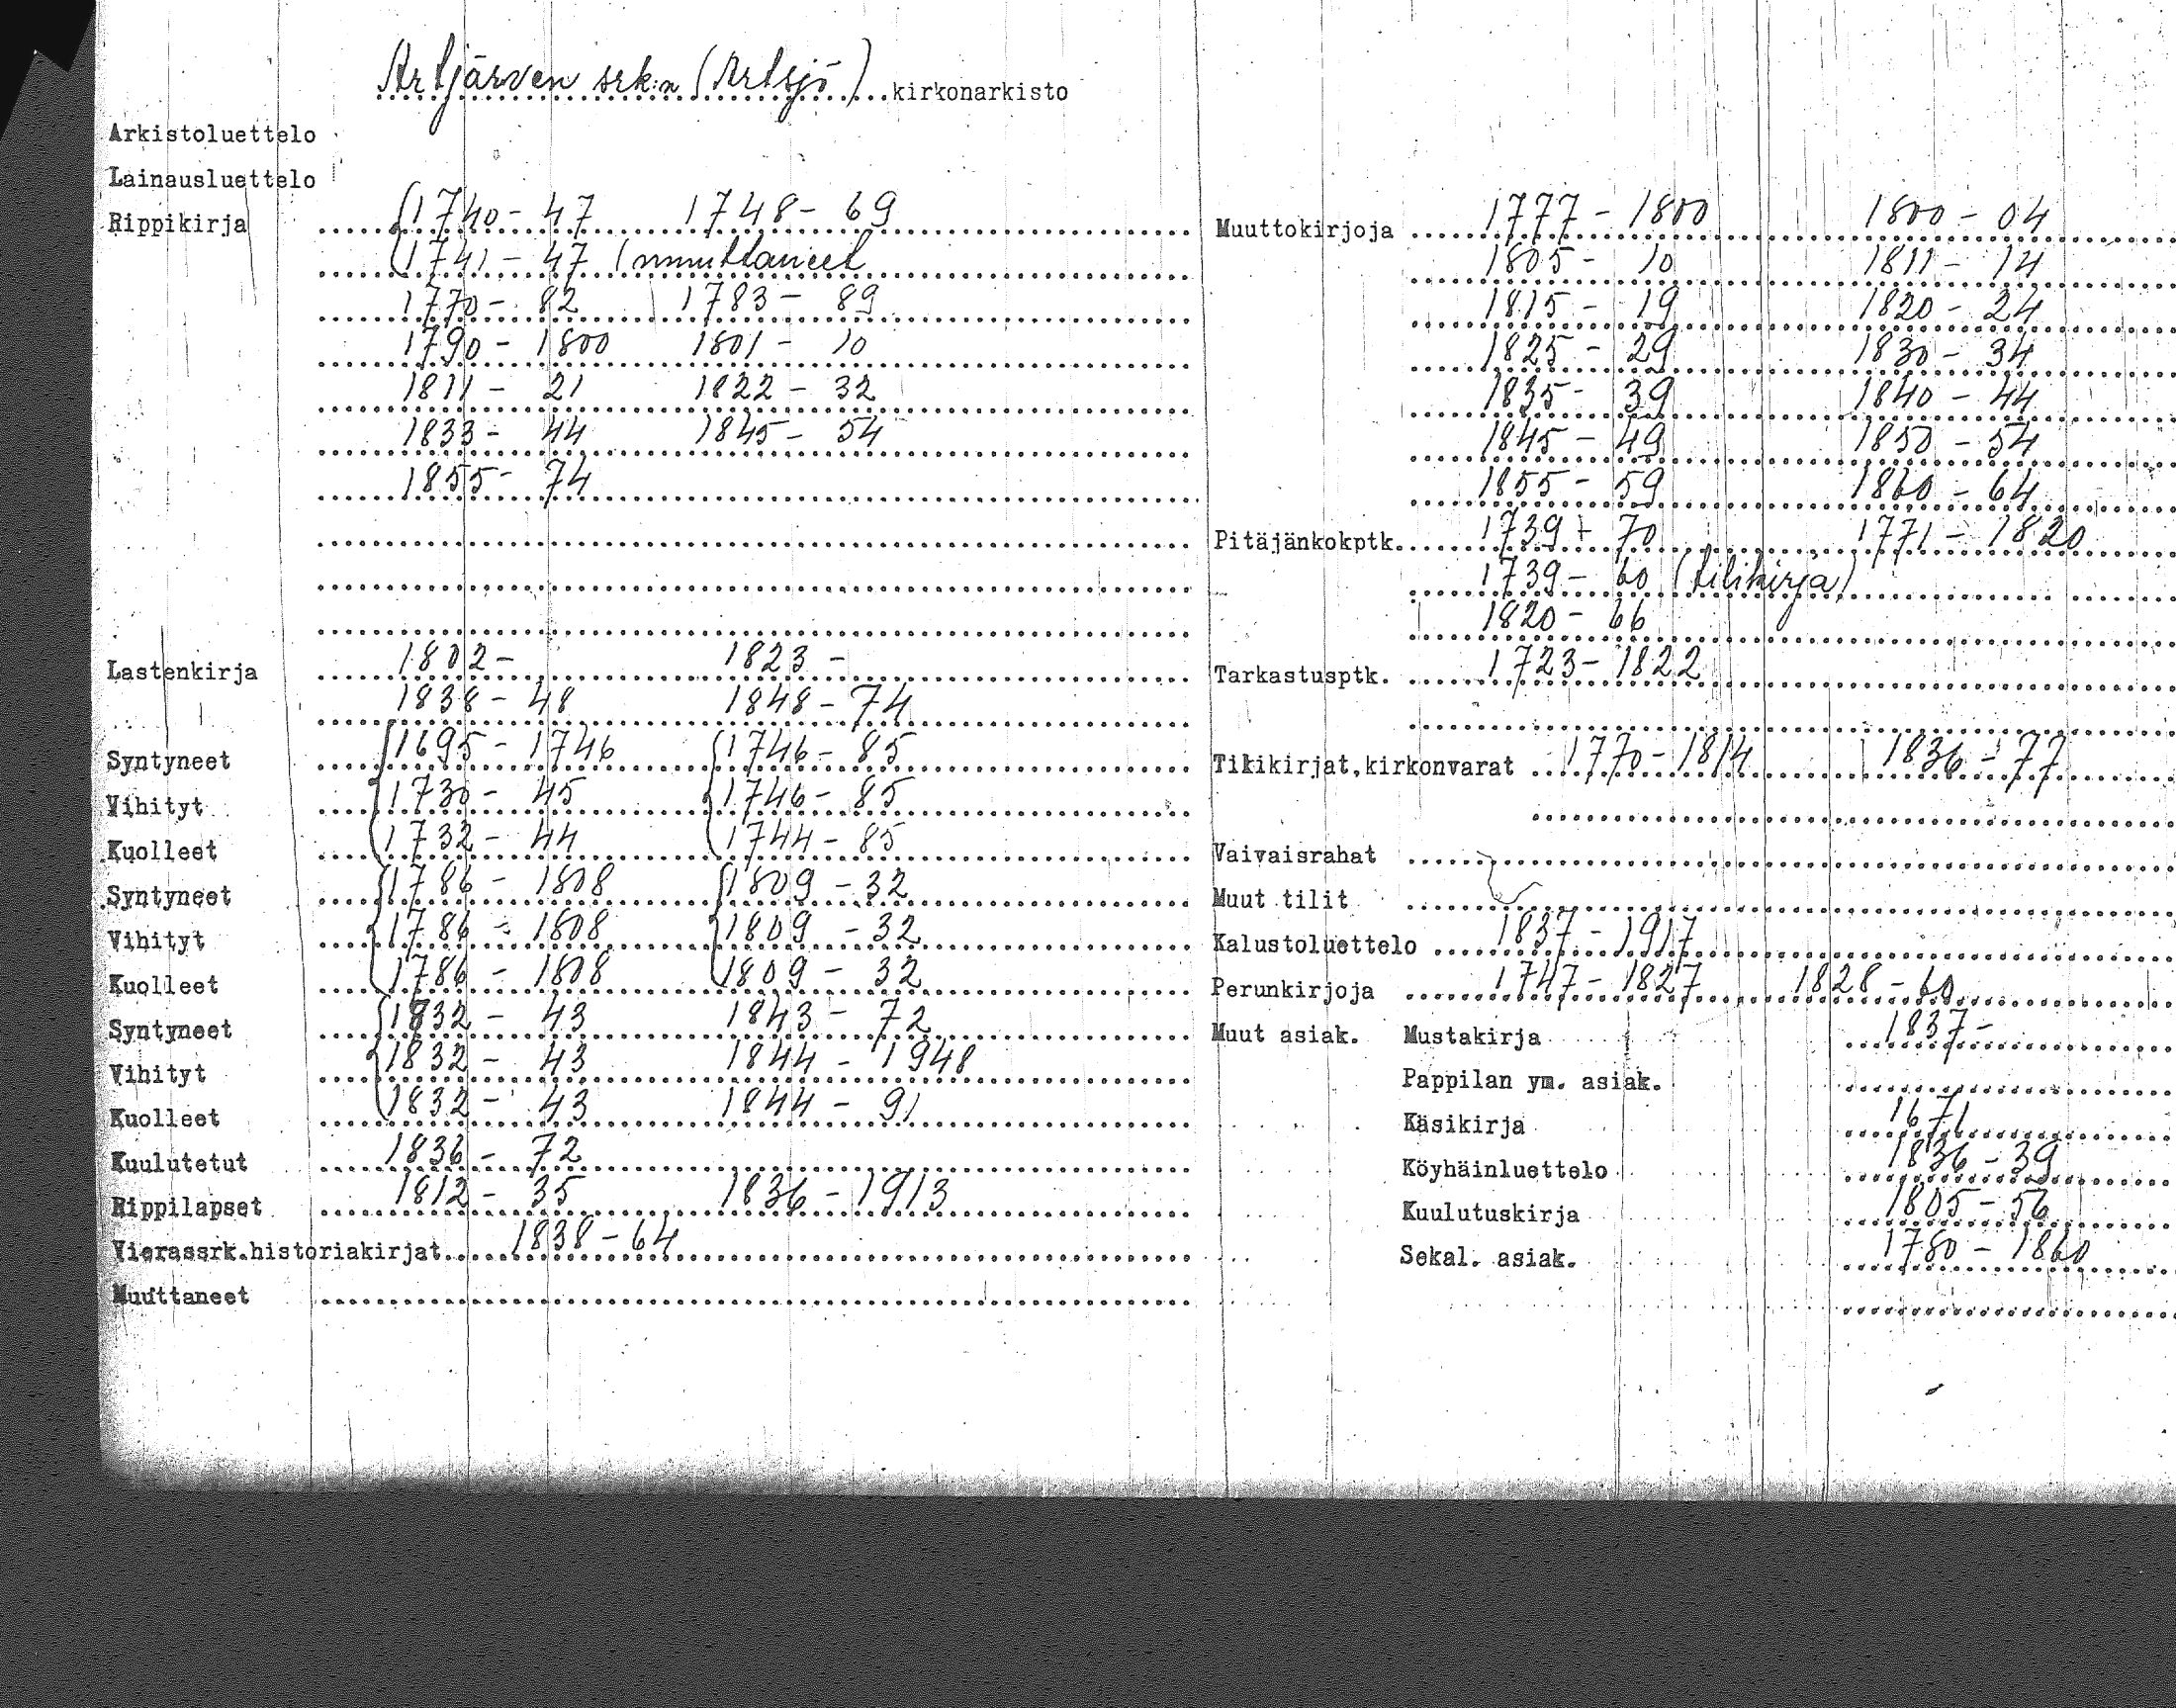 Artjärven srk:n (Artsjö) kirkonarkisto
Arkistoluettelo
Lainausluettelo
Rippikirja 1740 - 47 1748 - 69
1741 - 47 (muuttaneet
1770 - 82 1783 - 89
1790 - 1800 1801 - 10
1811 - 21 1822 - 32
1833 - 44 1845 - 54
1855 - 74
Lastenkirja 1802 - 1823 -
1838 - 48 1848 - 74
Syntyneet 1695 - 1746 1746 - 85
Vihityt 1730 - 45 1746 - 85
Kuolleet 1732 - 44 1744 - 85
Syntyneet 1786 - 1808 1809 - 32
Vihityt 1786 - 1808 1809 - 32
Kuolleet 1786 - 1808 1809 - 32
Syntyneet 1832 - 43 1843 - 72
Vihityt 1832 - 43 1844 - 1948
Kuolleet 1832 - 43 1844 - 91
Kuulutetut 1836 - 72
Rippilapset 1812 - 35 1836 - 1913
Vierassrk.historiakirjat 1838 - 64
Muuttaneet
Muuttokirjoja 1777 - 1800 1800 - 04
1805 - 10 1811 - 14
1815 - 19 1820 - 24
1825 - 29 1830 - 34
1835 - 39 1840 - 44
1845 - 49 1850 - 54
1855 - 59 1860 - 64
Pitäjänkokptk. 1739 - 70 1771 - 1820
1739 - 60 (tilikirja)
1820 - 66
Tarkastusptk. 1723 - 1822
Tilikirjat,kirkonvarat 1770 - 1814 1836 - 77
Vaivaisrahat
Muut tilit
Kalustoluettelo 1837 - 1917
Perunkirjoja 1747 - 1827 1828 - 60
Muut asiak. Mustakirja 1837 -
Pappilan ym. asiak.
Käsikirja 1671
Köyhäinluettelo 1836 - 39
Kuulutuskirja 1805 - 56
Sekal. asiak. 1780 - 1860